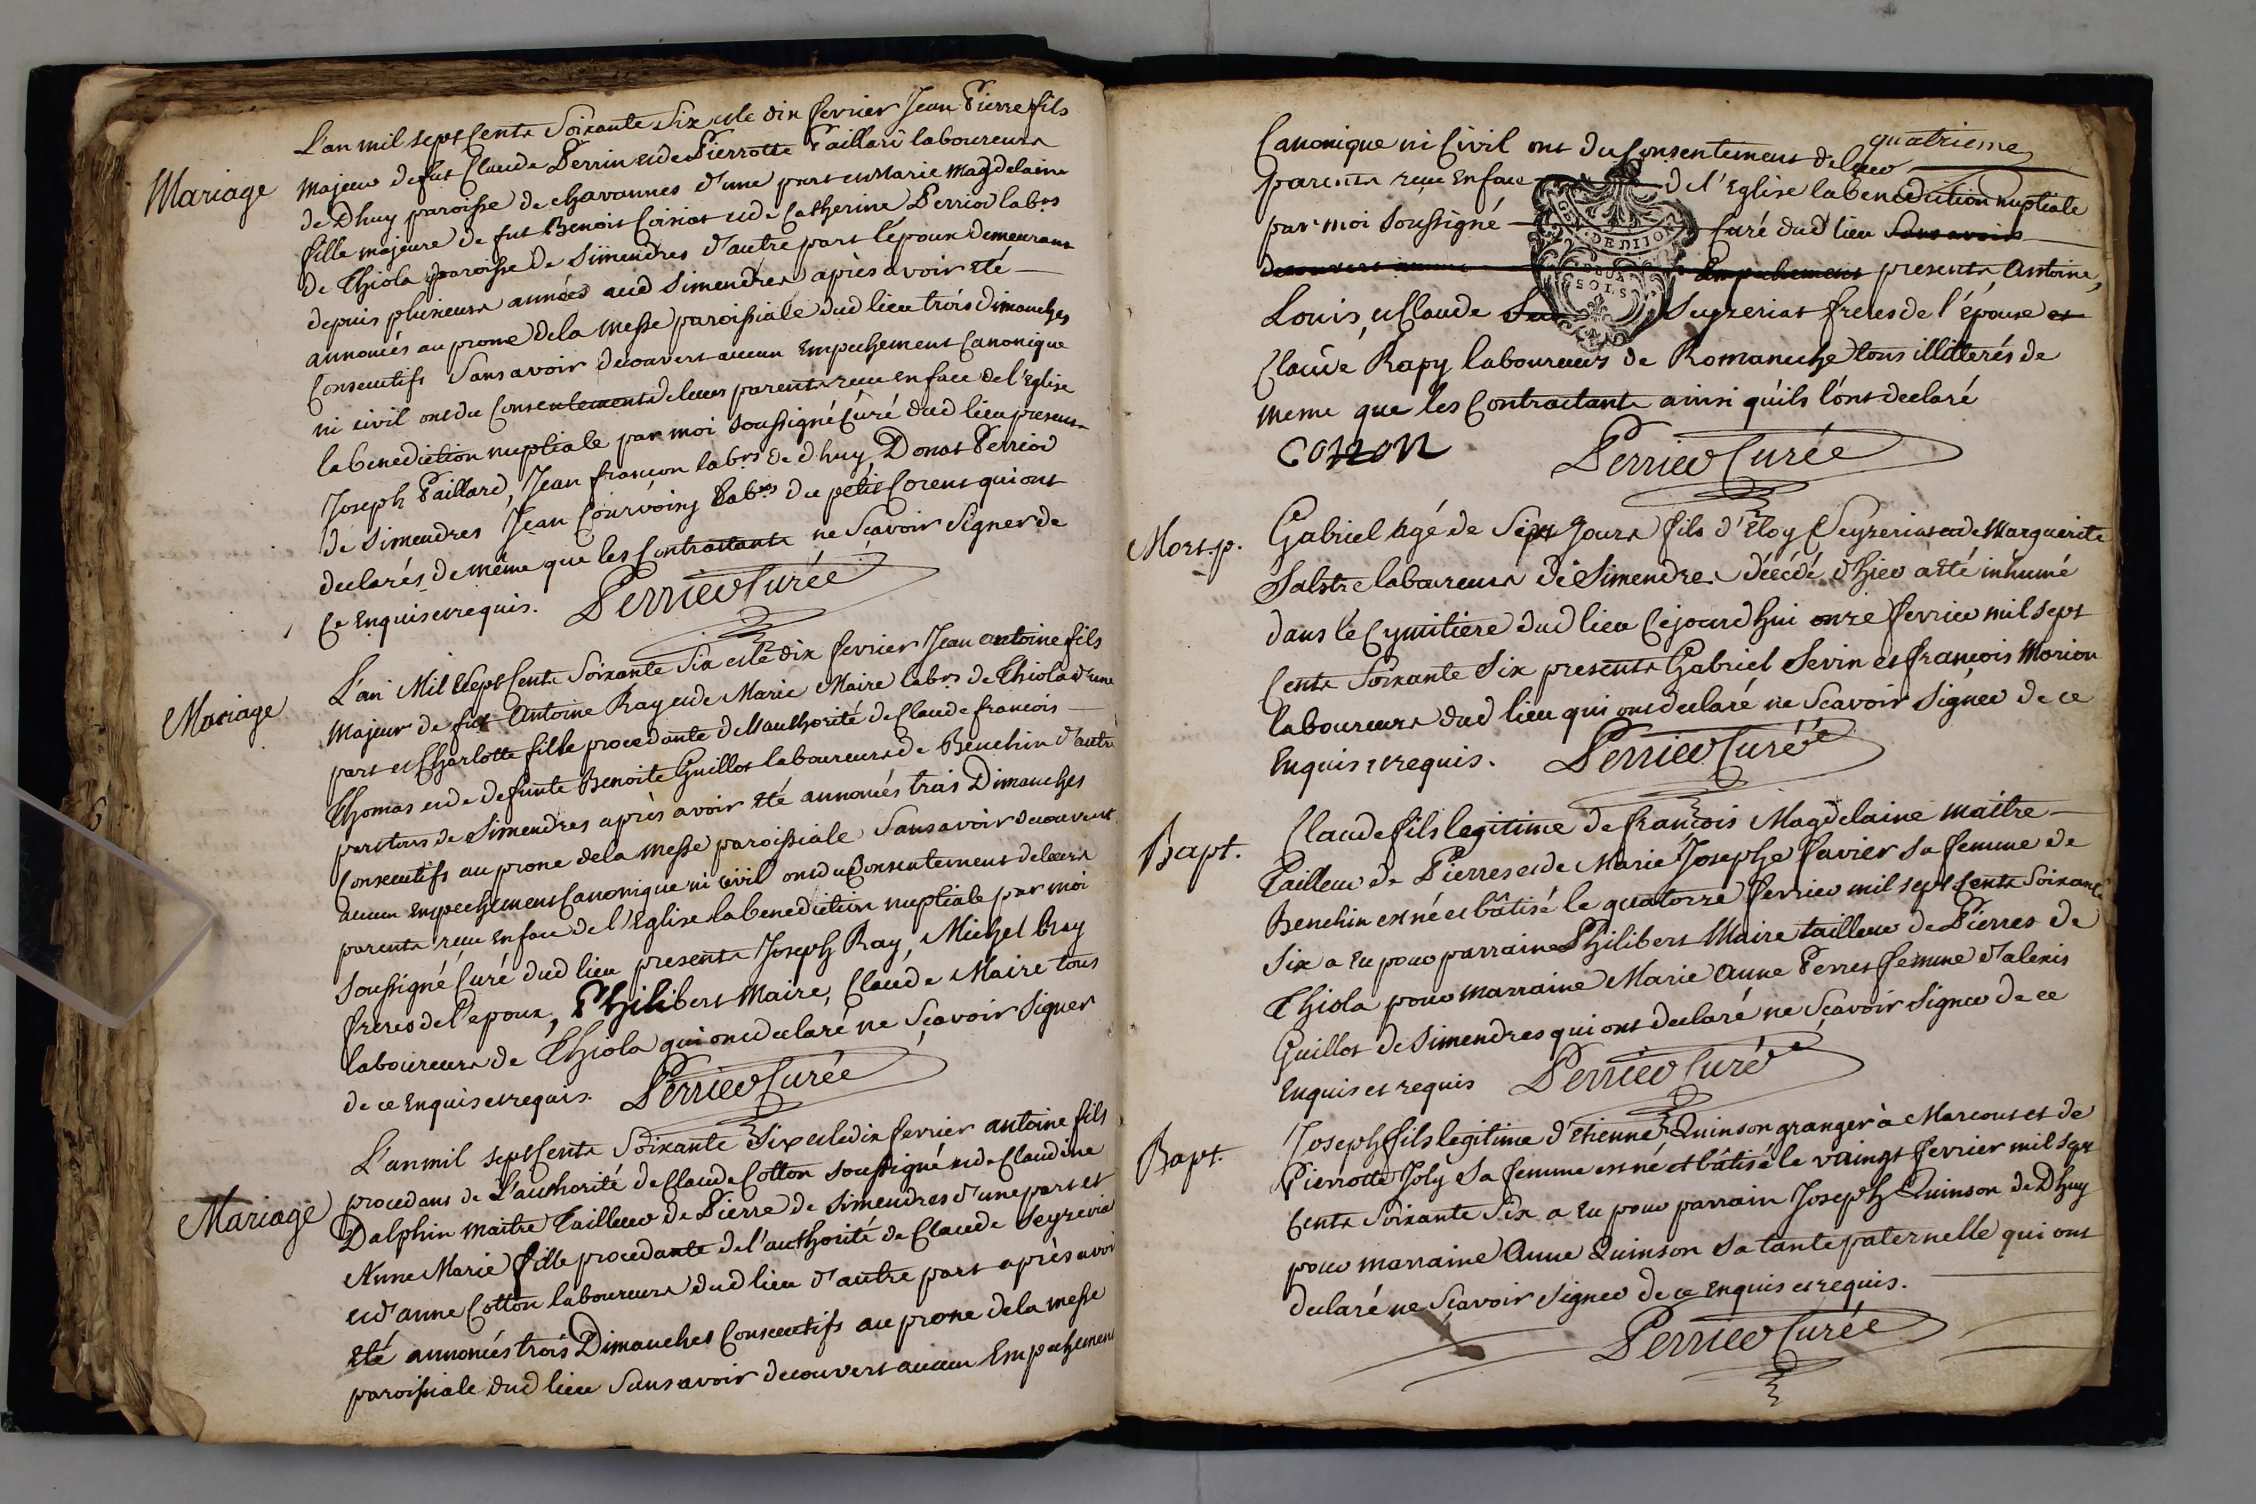 Mariage
L'an mil sept Cents Soixante Six et le dix fevrier Jean Pierre fils
majeur de fut Claude Perrin et de Pierrotte Paillard laboureurs
de Dhuy paroisse de chavannes d'une part et Marie Magdelaine
fille majeure de fut Benoit Coisiat et de Catherine Perriod labrs
de Thiola paroisse de Simendres d'autre part l'époux demeurant
depuis plusieurs années aud Simendres après avoir été
annoncés au prone de la Messe paroissiale dud lieu trois dimanches
Consecutifs Sans avoir decouvert aucun Empechement Canonique
ni civil ont du Consentements de leurs parents reçu en face de l'Eglise
la benediction nuptiale par moi soussigné Curé dud lieu presents
Joseph Paillard, Jean françon labrs de dhuy Donat Perriod
de Simendres Jean Courvoisy labrs du petit Corent qui ont
declarés de même que les Contractants ne Scavoir Signer de
Ce Enquis et requis. Perrier Curée
Mariage
L'an Mil Sept Cents Soixante Six et le dix fevrier Jean antoine fils
Majeur de fut Antoine Ray et de Marie Maire labrs de Thiola d'une
part et Charlotte fille procedante de l'authorité de Claude francois
Thomas et de defunte Benoite Guillot laboureurs de Beuchin d'autre
part tous de Simendres après avoir été annoncés trois Dimanches
Consecutifs au prone de la Messe paroissiale Sans avoir decouvert
aucun Empechement Canonique ni civil ont du Consentement de leurs
parents reçu En face de l'Eglise la benediction nuptiale par moi
Soussigné Curé dud lieu presents Joseph Ray, Michel Ray
freres de l'epoux, Philibert Maire, Claude Maire tous
laboureurs de Thiola qui ont declaré ne Scavoir Signer
de ce Enquis et requis. Perrier Curée
Mariage
L'an mil sept Cents Soixante Six et le dix fevrier antoine fils
procedant de L'authorité de Claude Cotton soussigné et de Claudine
Dalphin maitre Tailleur de Pierre de Simendres d'une part et
Anne Marie fille procedante de l'authorité de Claude Seyzeria
et d'anne Cotton laboureurs dud lieu d'autre part après avoir
été annoncés trois Dimanches Consecutifs au prone de la messe
paroissiale dud lieu Sans avoir decouvert aucun Empechement
quatrieme
Canonique ni Civil ont du Consentement de leur
parents reçu En face de l'Eglise la benediction nuptiale
par moi Soussigné Curé dud lieu Sans avoir
decouvert aucun Empechement presents, Antoine,
GEN. DE DIJON
DEUX
SOLS
Louis, et Claude Seyzeriat freres de l'épouse et
Claude Rapy laboureurs de Romaneche tous illitterés de
meme que les Contractants ainsi qu'ils l'ont declaré
cotton Perrier Curée
Mort. p.
Gabriel agé de Sept Jours fils d'Eloy Seyzeriat et de Marguerite
Salstre laboureurs de Simendre décédé d'hier a été inhumé
dans le Cymitiere dud lieu Cejourdhui onze fevrier mil sept
Cents Soixante Six presents Gabriel Sevin et françois Morion
laboureurs dud lieu qui ont declaré ne Scavoir Signer de ce
Enquis et requis. Perrier Curée
Bapt.
Claude fils legitime de francois Magdelaine maitre
Tailleur de Pierres et de Marie Josephe favier Sa femme de
Beuchin est né et bâtisé le quatorze fevrier mil sept Cents Soixante
Six a Eu pour parrain Philibert Maire tailleur de Pierres de
Thiola pour marraine Marie Anne Perret femme d'alexis
Guillot de Simendres qui ont declaré ne Scavoir Signer de ce
Enquis et requis Perrier Curé
Bapt.
Joseph fils legitime d'Etienne Quinson granger à Marcout et de
Pierrotte Joly Sa femme est né et bâtisé le vaingt fevrier mil Sept
Cents Soixante Six a Eu pour parrain Joseph Quinson de Dhuy
pour marraine Anne Quinson Sa tante paternelle qui ont
declaré ne Scavoir Signer de ce Enquis et requis.
Perrier Curée